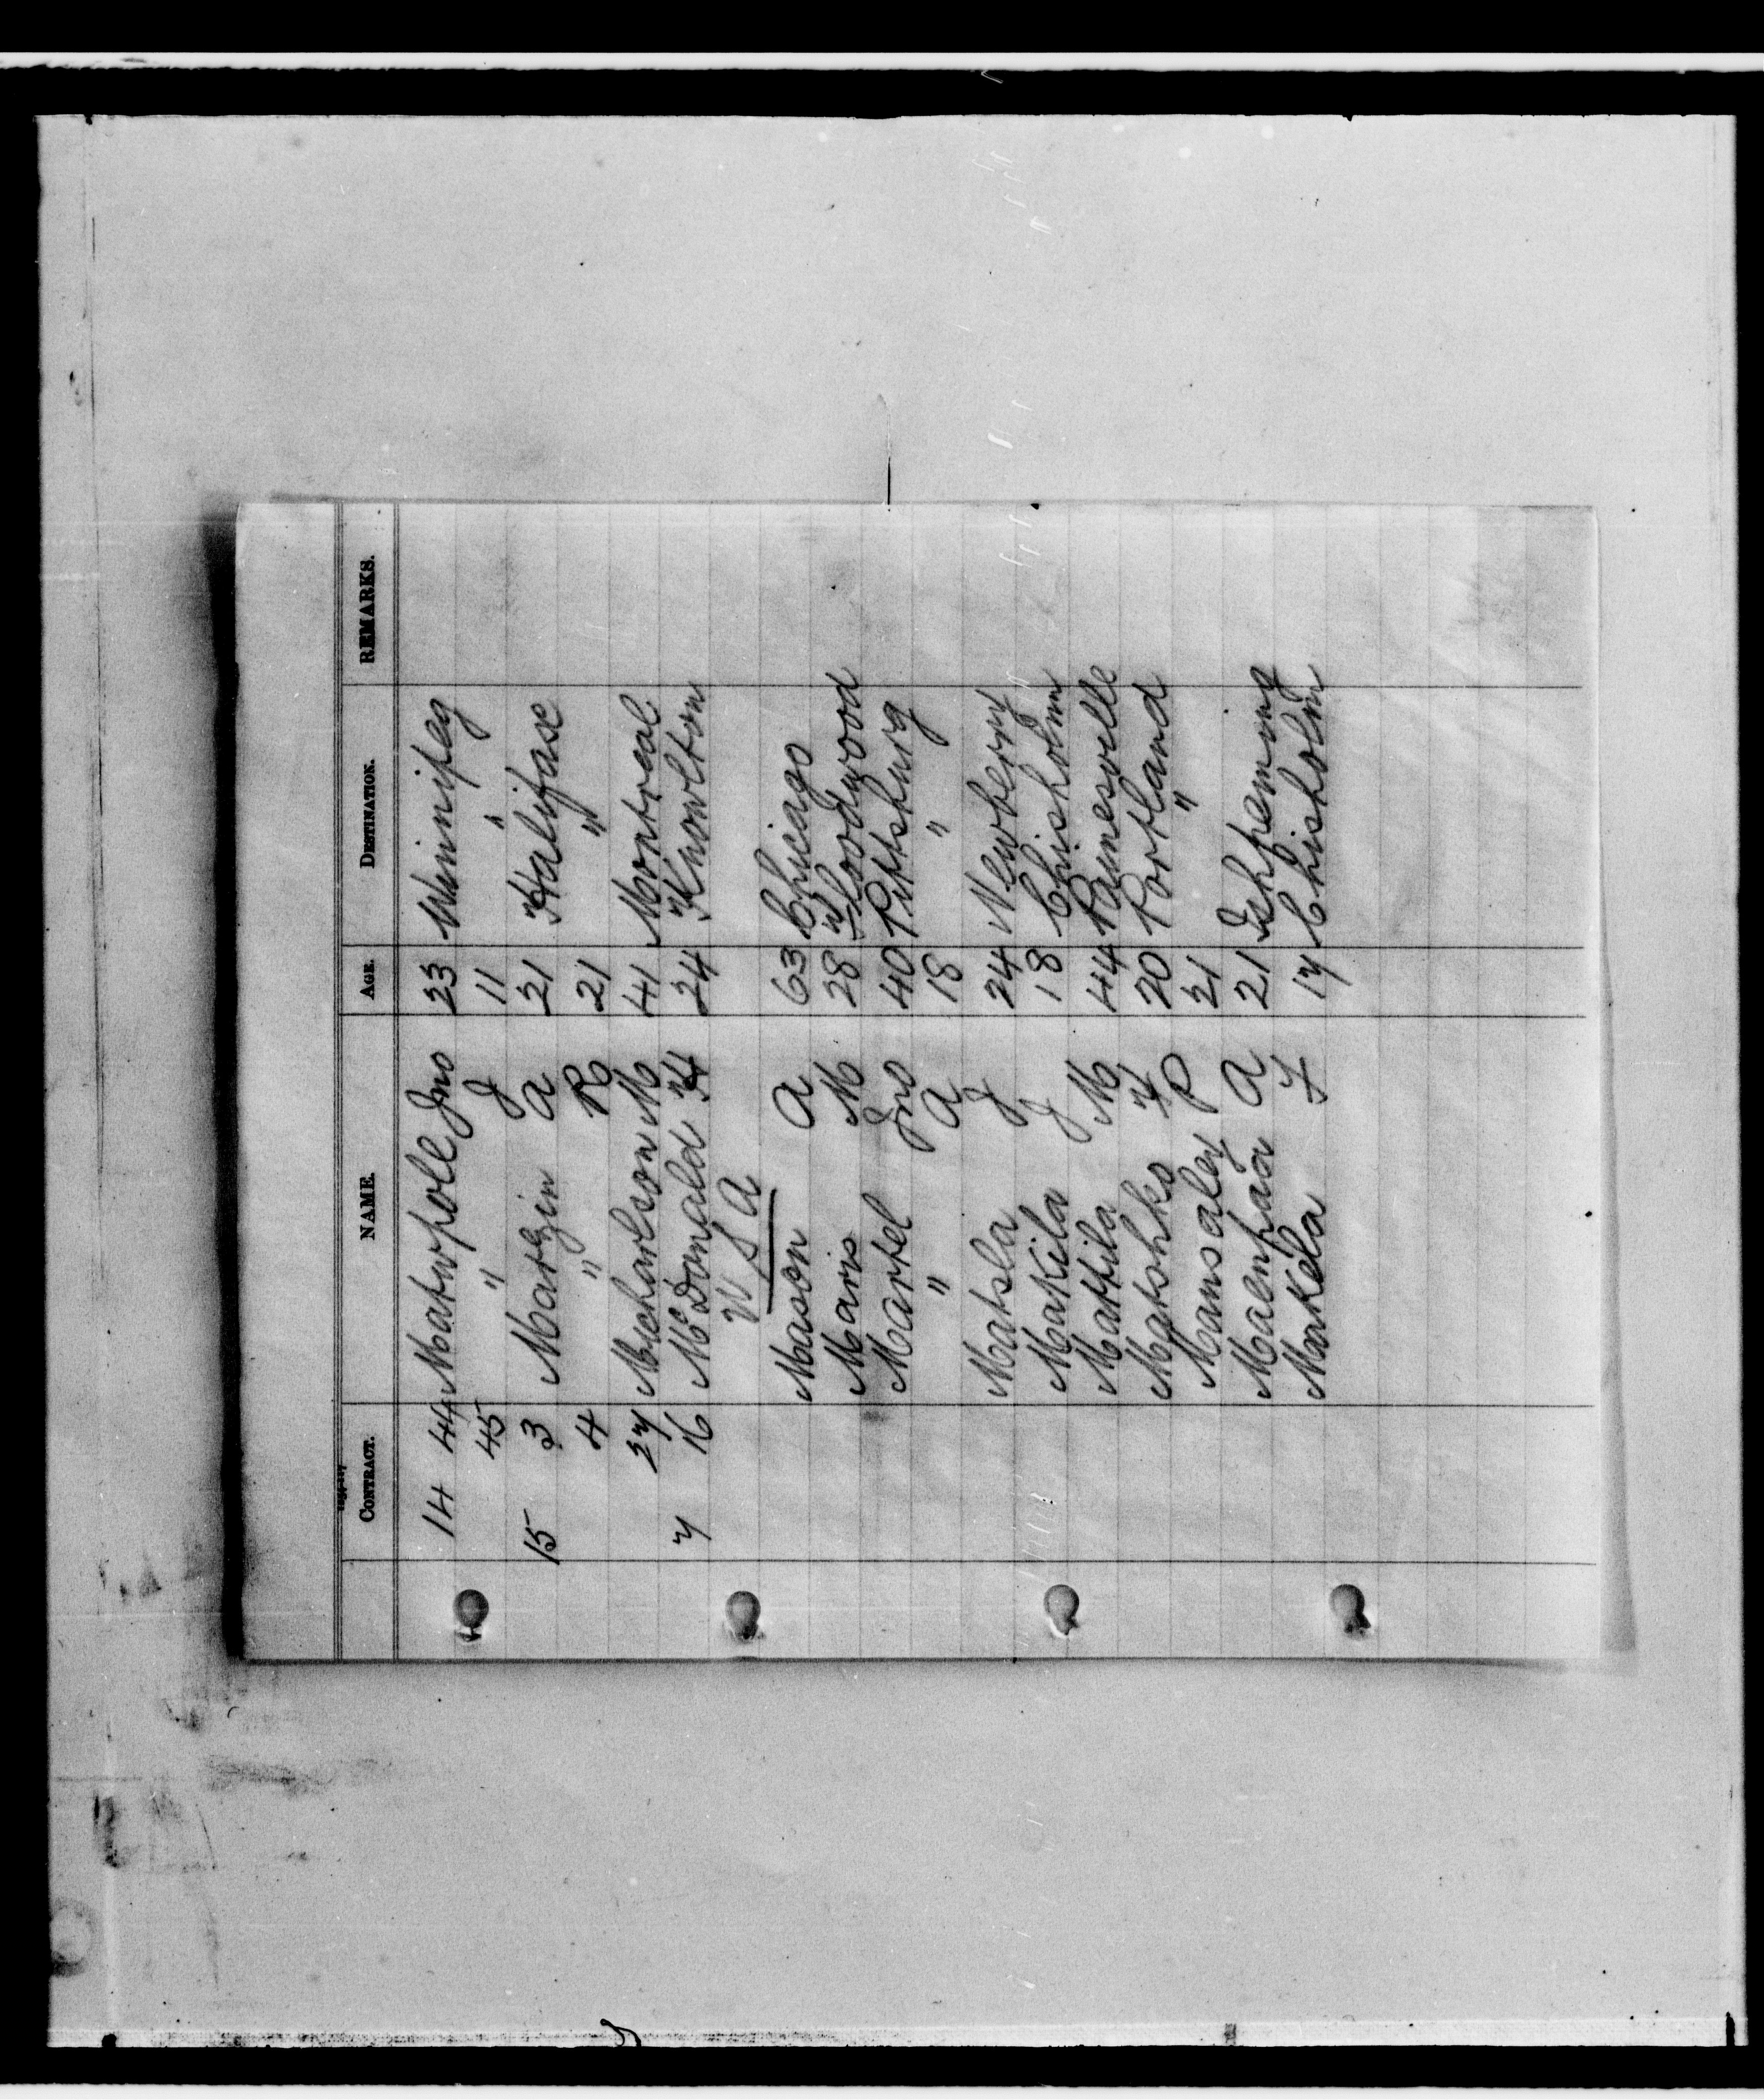 CONTRACT. NAME. AGE. DESTINATION. REMARKS.
14 44 Matwpoll Jno 23 Winnipeg
45 " J 11 "
15 3 Matzin A 21 Halifax
4 " R 21 "
27 Micharlson M 41 Montreal
7 16 McDonald H 24 Knowlton
U S A
Mason A 63 Chicago
Maris M 28 Woodwood
Martel Jno 40 Pittsburg
" A 18 "
Matsla J 24 Newberry
Makila J 18 Chisholm
Mattila M 44 Painesville
Matshko H 20 Portland
Mansaley P 21 "
Maenpaa A 21 Ishpeming
Makela F 17 Chisholm